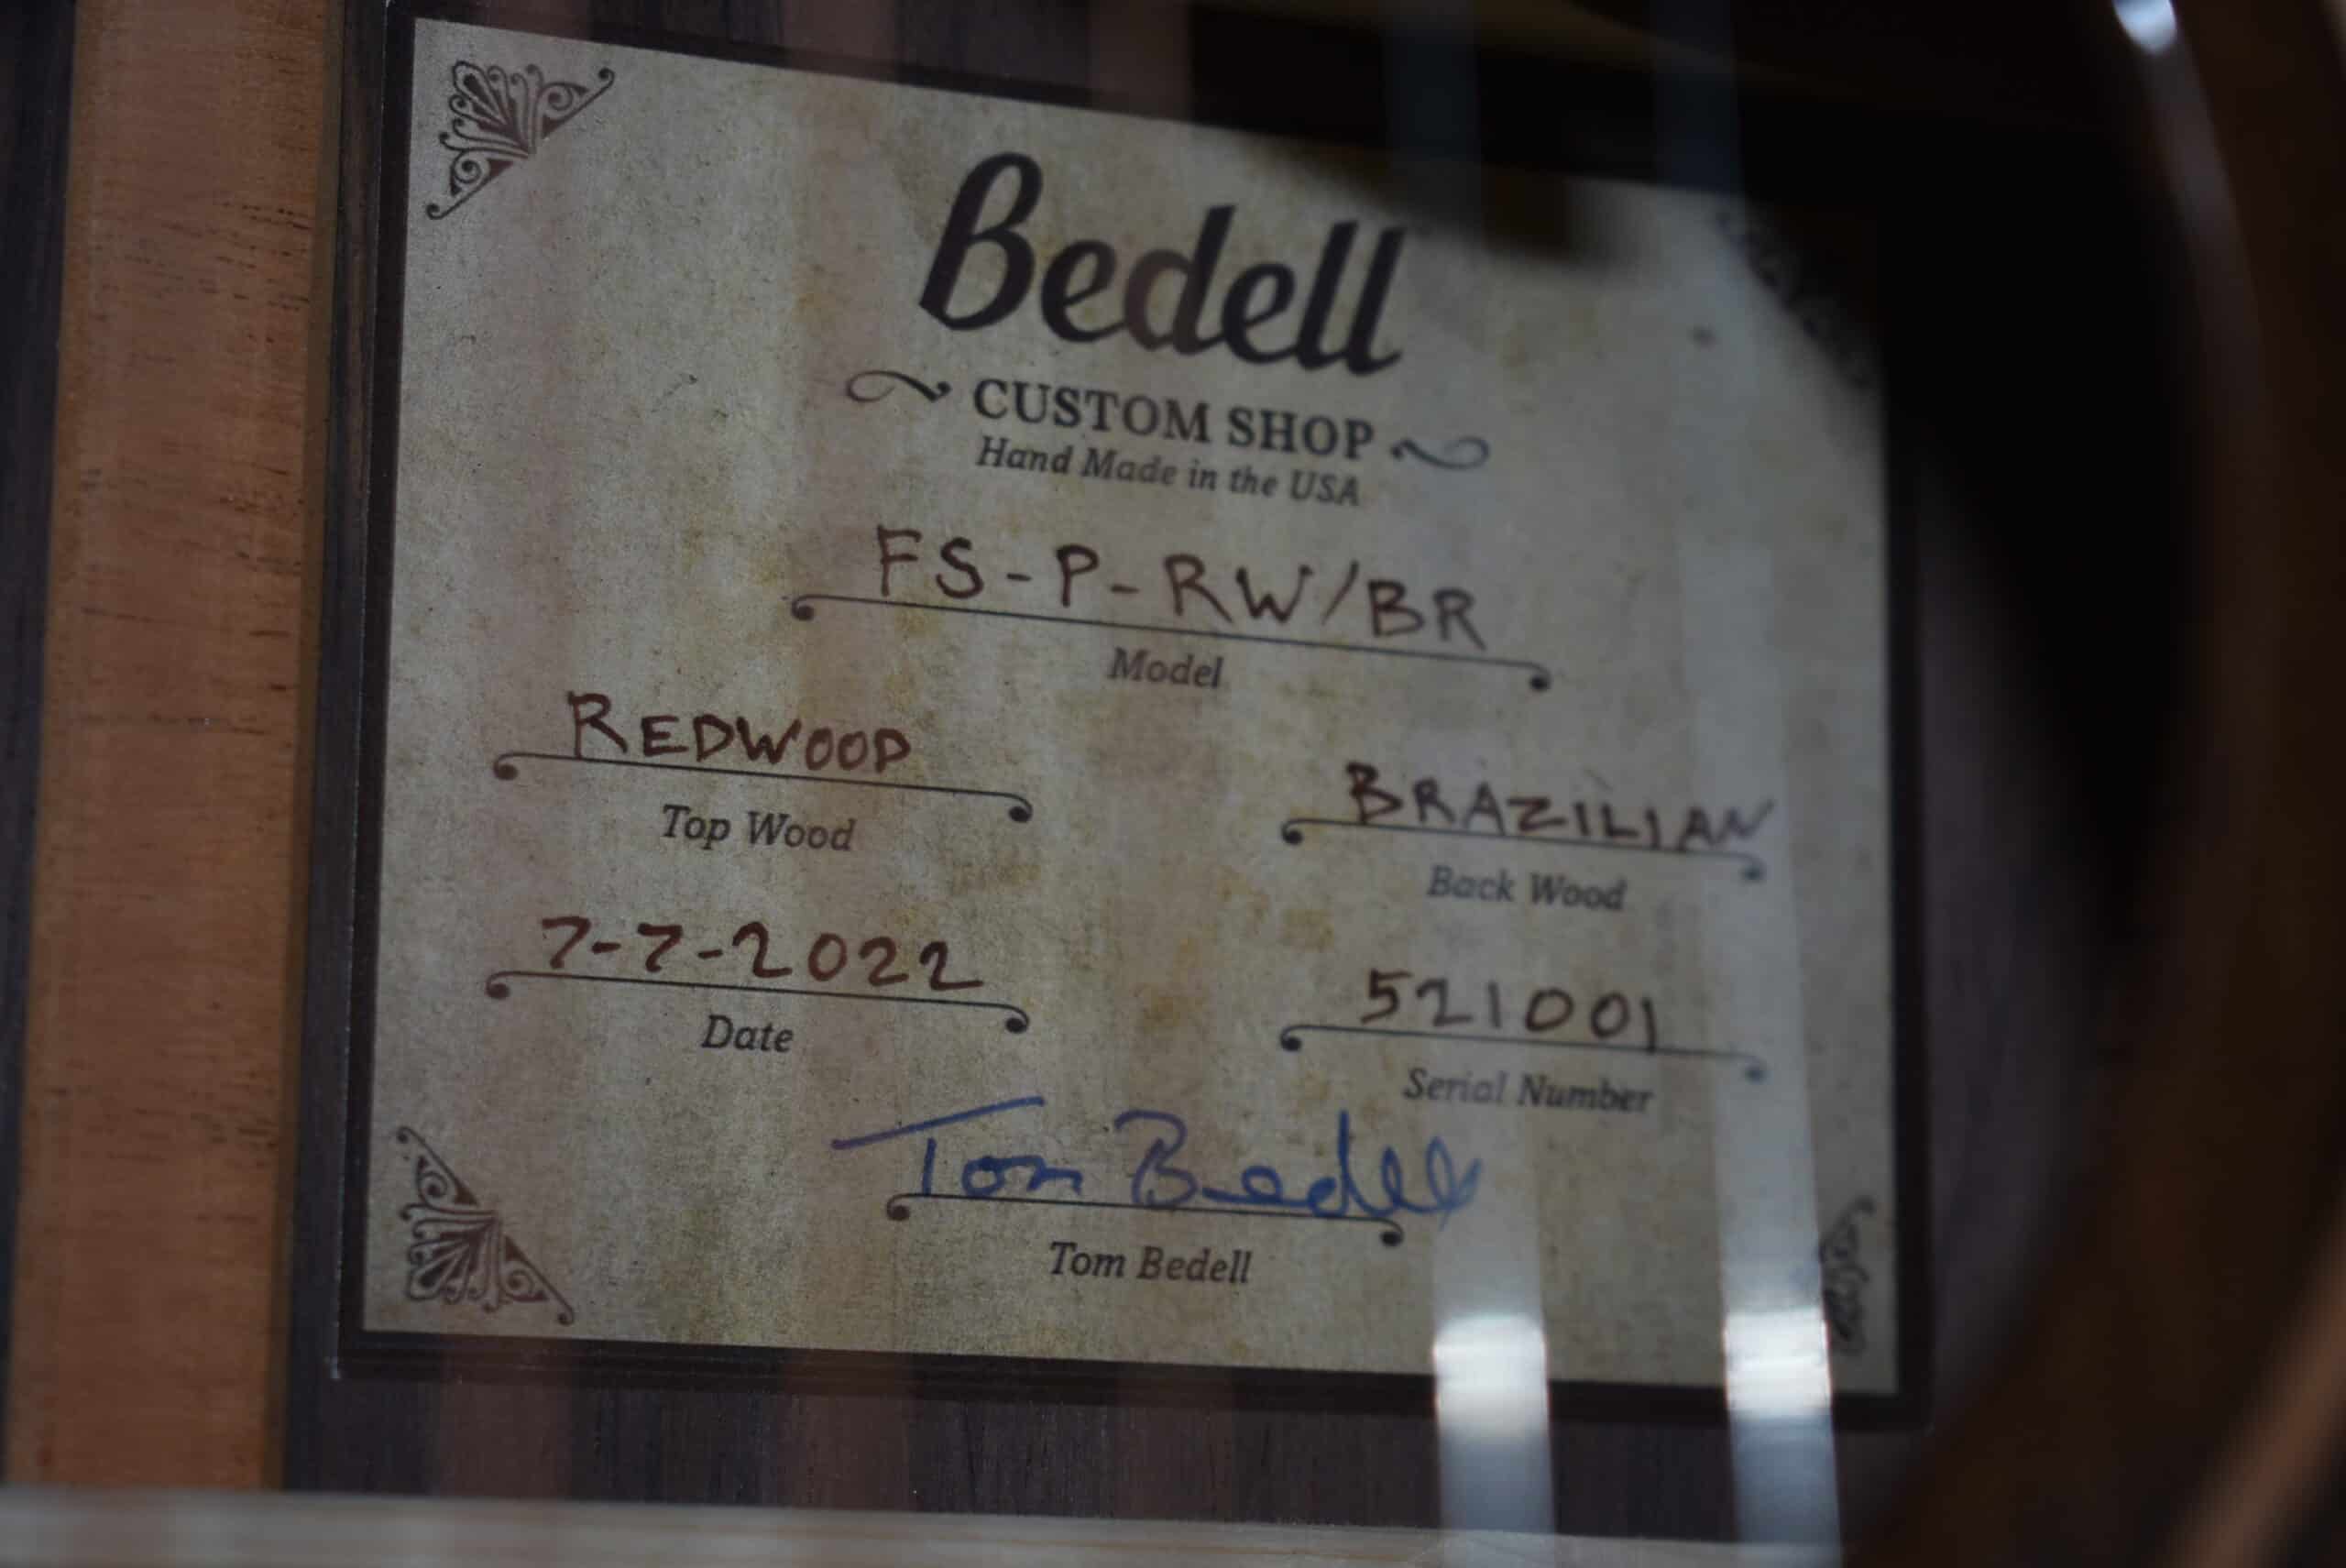 Bedell
CUSTOM SHOP
Hand Made in the USA
FS-P-RW/BR
Model
REDWOOD
Top Wood
BRAZILIAN
Back Wood
7-7-2022
Date
521001
Serial Number
Tom Bedell
Tom Bedell